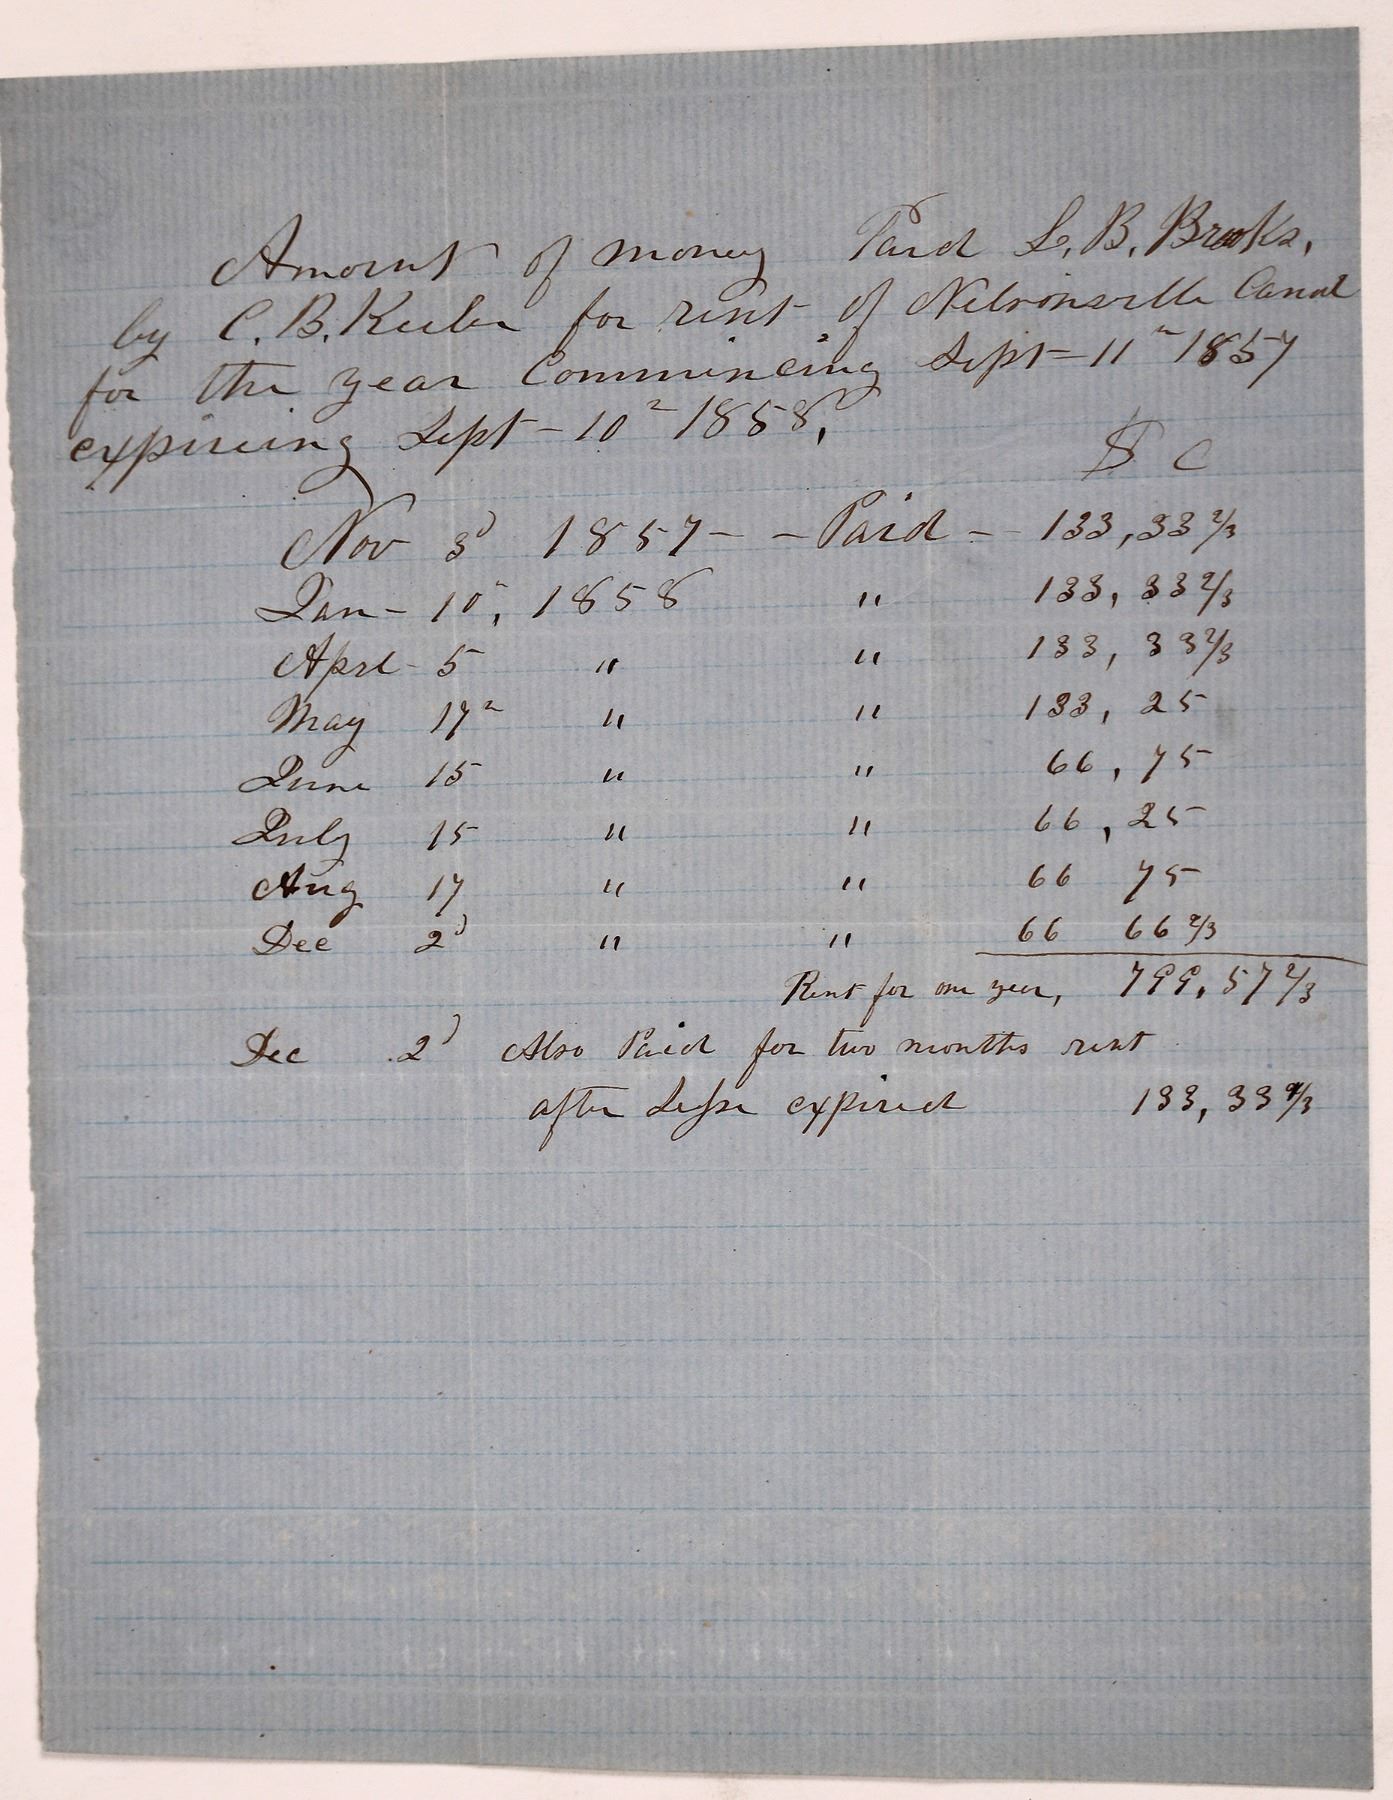 Amount of money Paid L. B. Brooks,
by C. B. Keeler for rent of Nelsonsville Canal
for the year Commincing Sept - 11" 1857
expireing Sept - 10" 1858,
$ C
Nov 3d 1857 - - Paid - - 133,33 2/3
Jan - 10", 1858 " 133, 33 2/3
Aprl - 5 " " 133, 33 2/3
May 17" " " 133, 25
June 15 " " 66, 75
July 15 " " 66, 25
Aug 17 " " 66 75
Dec 2d " " 66 66 2/3
Rent for one year, 799, 57 2/3
Dec 2d Also Paid for two months rent
after expired 133, 33 2/3